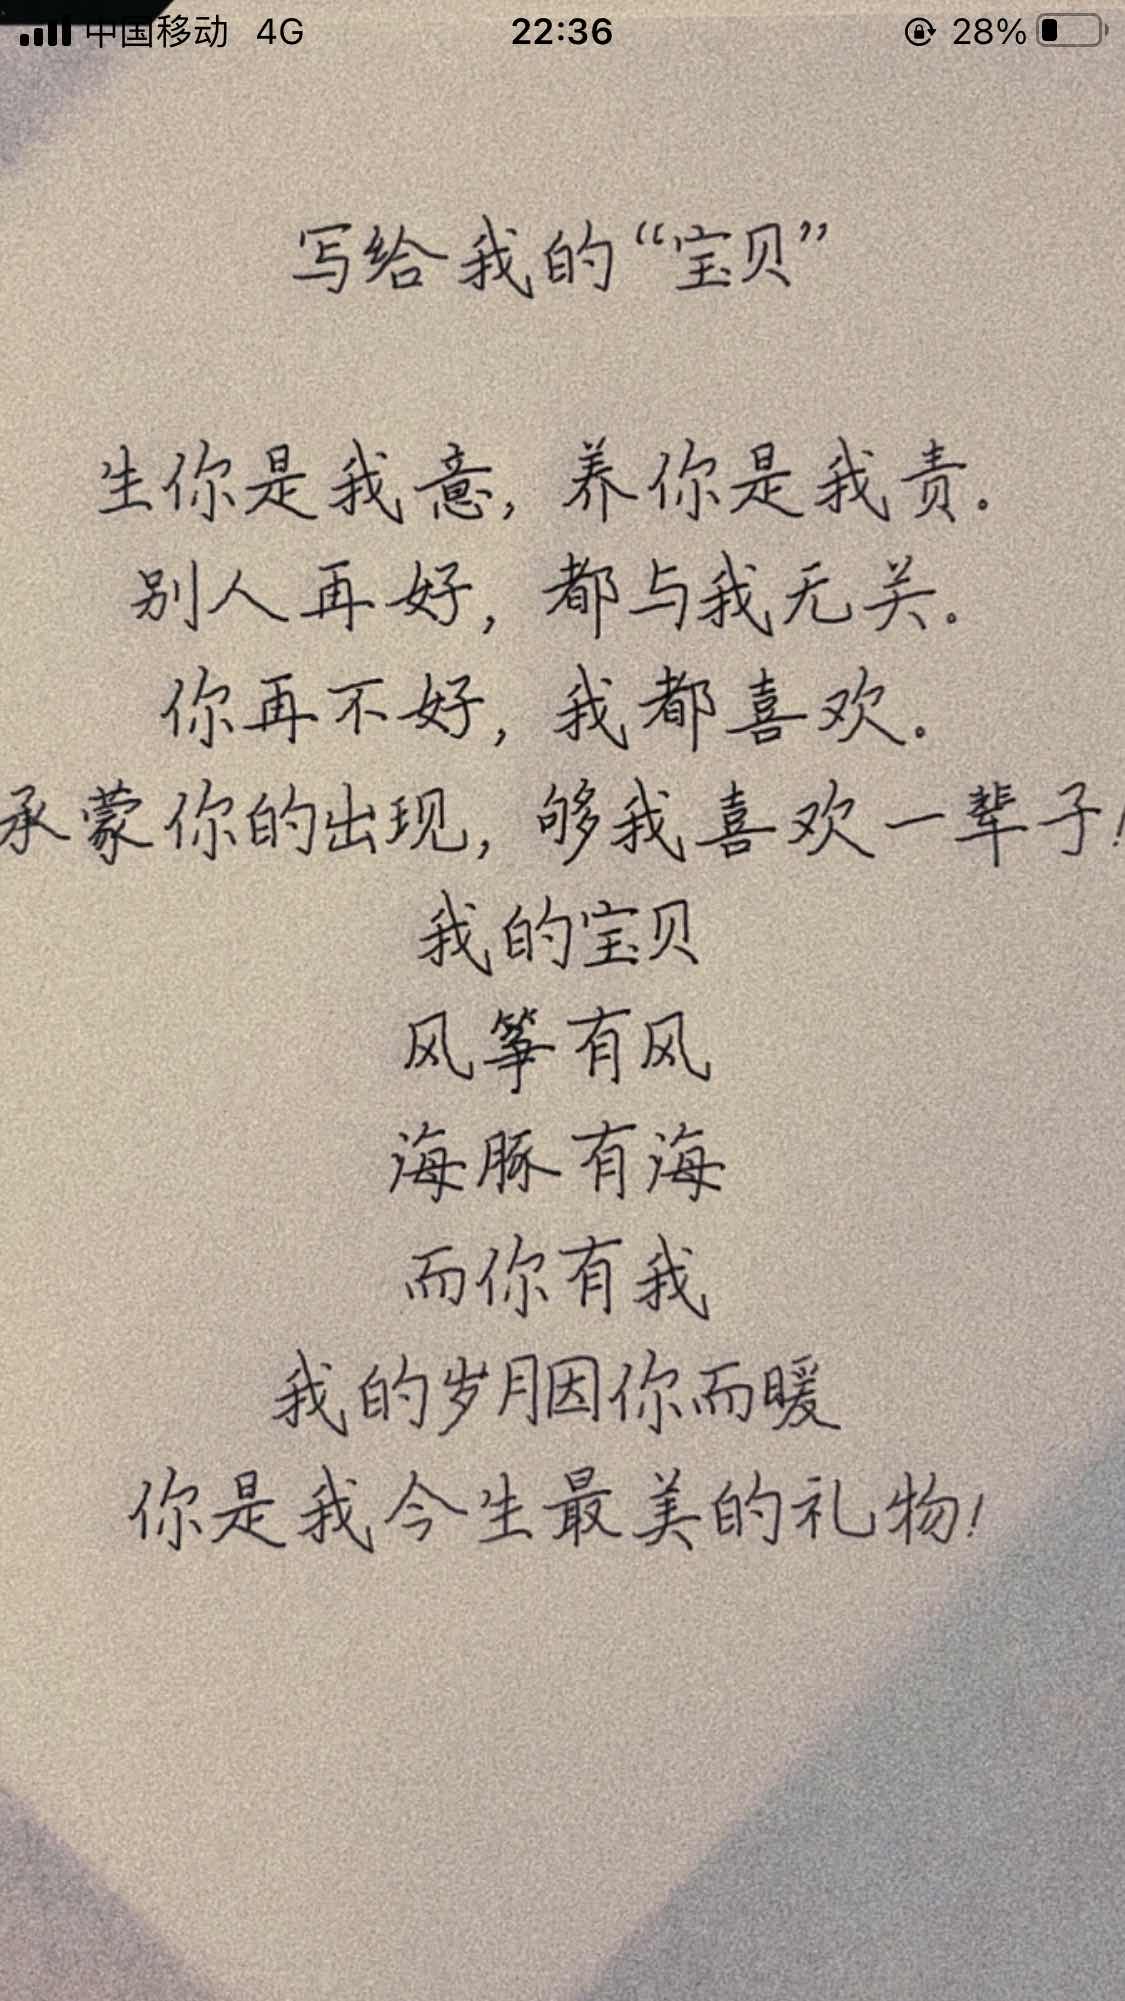 中国移动 4G 22:36 28%
写给我的“宝贝”
生你是我意，养你是我责。
别人再好，都与我无关。
你再不好，我都喜欢。
承蒙你的出现，够我喜欢一辈子！
我的宝贝
风筝有风
海豚有海
而你有我
我的岁月因你而暖
你是我今生最美的礼物！